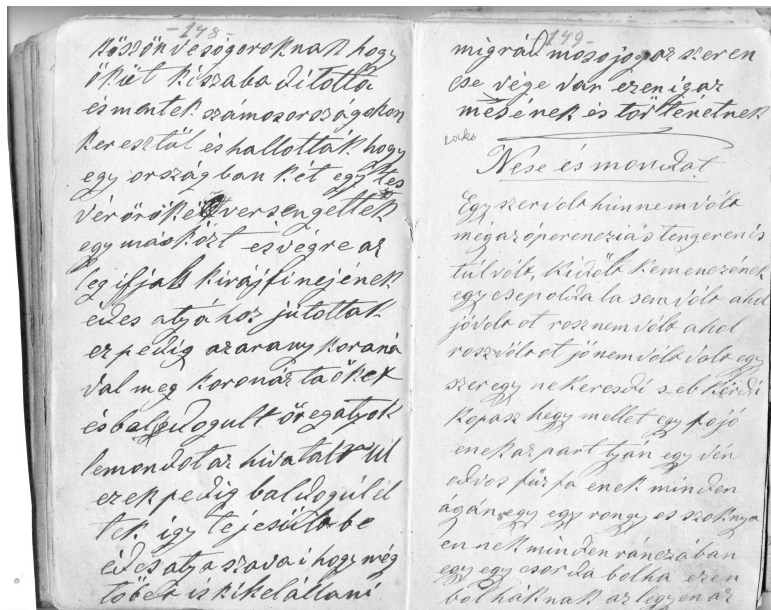 -148-
köszönve sógoroknak hogy
ököt kiszabadította
és mentek számos országokon
keresztől és hallották hogy
egy országban két egy tes
vér örökén versengettek
egy más közt és végre az
legifjab kirájfi nejének
édes atyához jutottak
ez pedig az arany koroná
val meg koronázta őket
és baldogult öreg atyok
lemondot az hivatalrúl
ezek pedig baldogúl él
tek így tejesült be
édes atya szavai hogy még
töbet is kikel állani
-149-
migrád mosojog az szeren
cse vége van ezen igaz
mesének és történetnek
Nese és mondat
Egyszer volt hun nem vólt
még az óperencziás tengeren is
túl vólt, kidölt kemenczének
egy csep oldala sem vólt ahol
jó vólt ot rosz nem vólt ahol
rosz vólt ot jó nem vólt volt egy
szer egy nekeresdi s eb kérdi
kopasz hegy mellet egy fojó
enek az part tyán egy vén
odvos fűzfa enek minden
ágán egy egy rongyos szoknya
ennek minden ránczában
egy egy csorda bolha ezen
bolháknak az legyen az